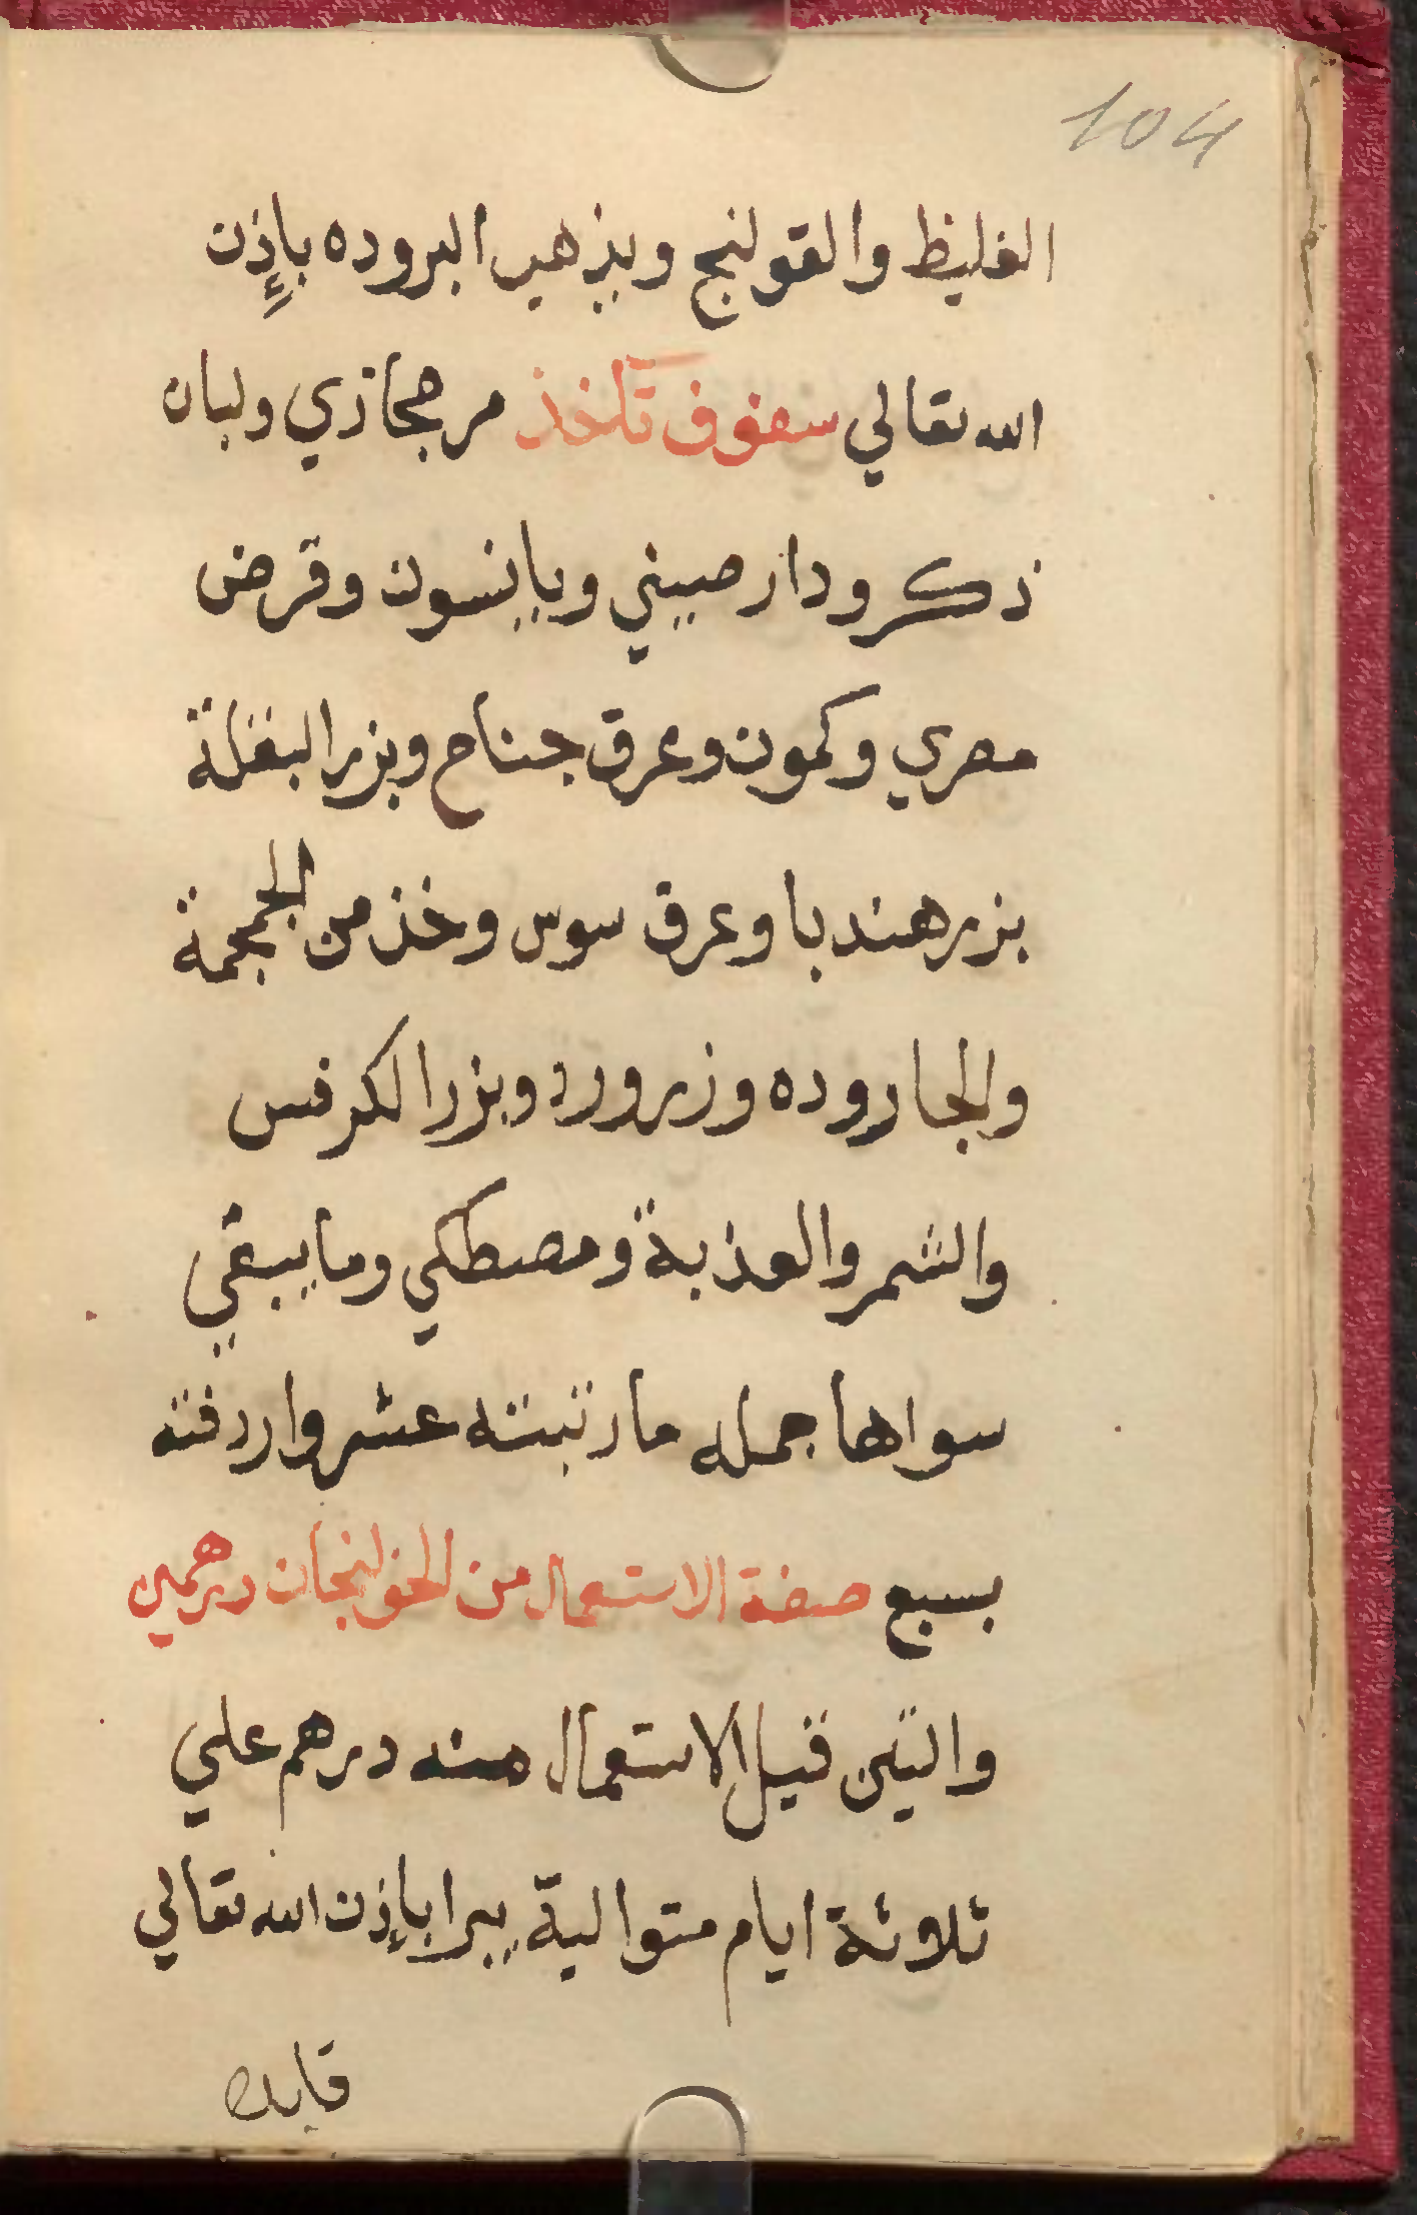 104
الغليظ والقولنج ويذهب البروده بإذن
الله تعالي سفوف تأخذ مر حجازي ولبان
ذكر ودار صيني ويانسون وقرض
مصري وكمون وعرق جناح وبزر البغلة
بزر هندبا وعرق سوس وخذ من الجمجمة
والجاروده وزر ورد وبزر الكرفس
والشمر والعذبة ومصطكي وما يبقي
سواها جمله ما رتبته عشر واردفته
بسبع صفة الاستعمال من الخولنجان درهمين
والتين قبل الاستعمال منه درهم علي
ثلاثة ايام متوالية يبرا بإذن الله تعالي